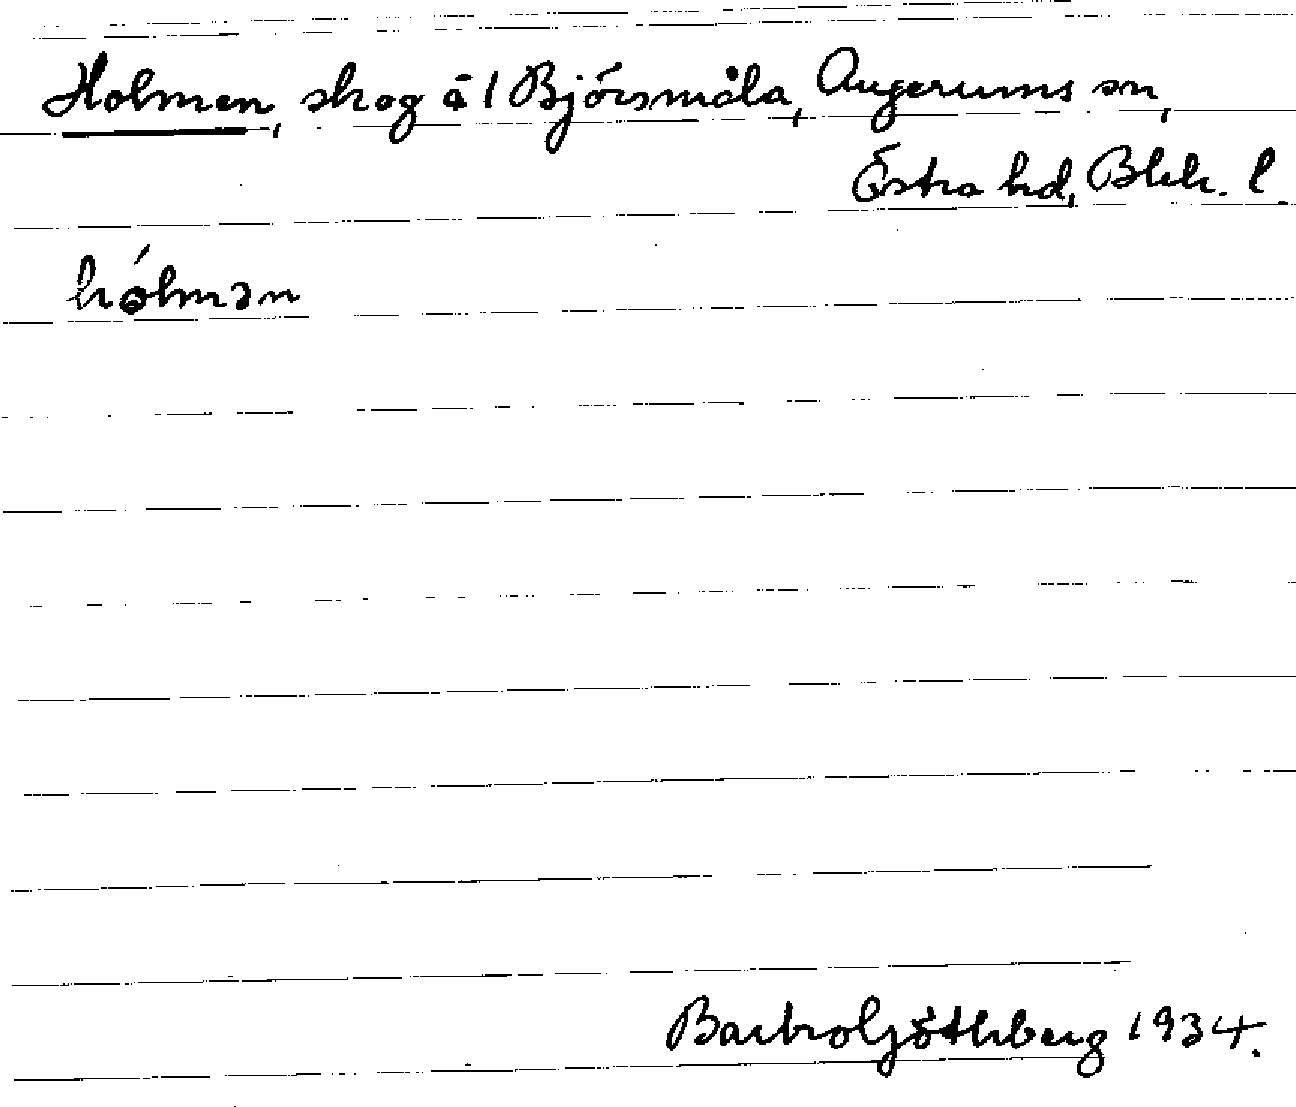 Holmen, skog å 1 Björsmåla, Augerums sn,
Östra hd, Blek. l.
hólmən
Göthberg 1934.